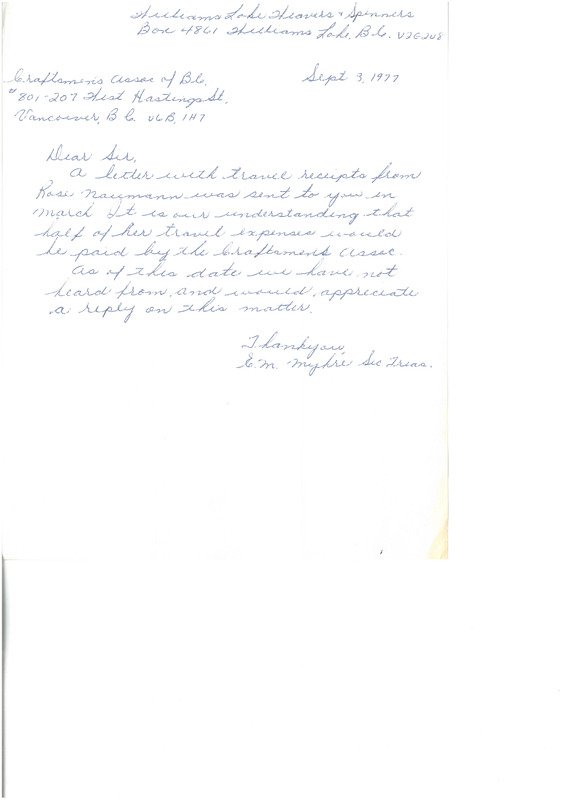 Williams Lake Weavers & Spinners
Box 4861 Williams Lake, B.C. V2G 2V8
Craftsmens Assoc of B.C.
Sept 3, 1977
#801-207 West Hastings St,
Vancouver, B C. V6B, 1H7
Dear Sir,
A letter with travel receipts from
Rose Naumann was sent to you in
March It is our understanding that
half of her travel expenses would
be paid by the Craftsmens Assoc.
As of this date we have not
heard from, and would, appreciate
a reply on this matter.
Thankyou,
E.M. Myhre Sec Treas.